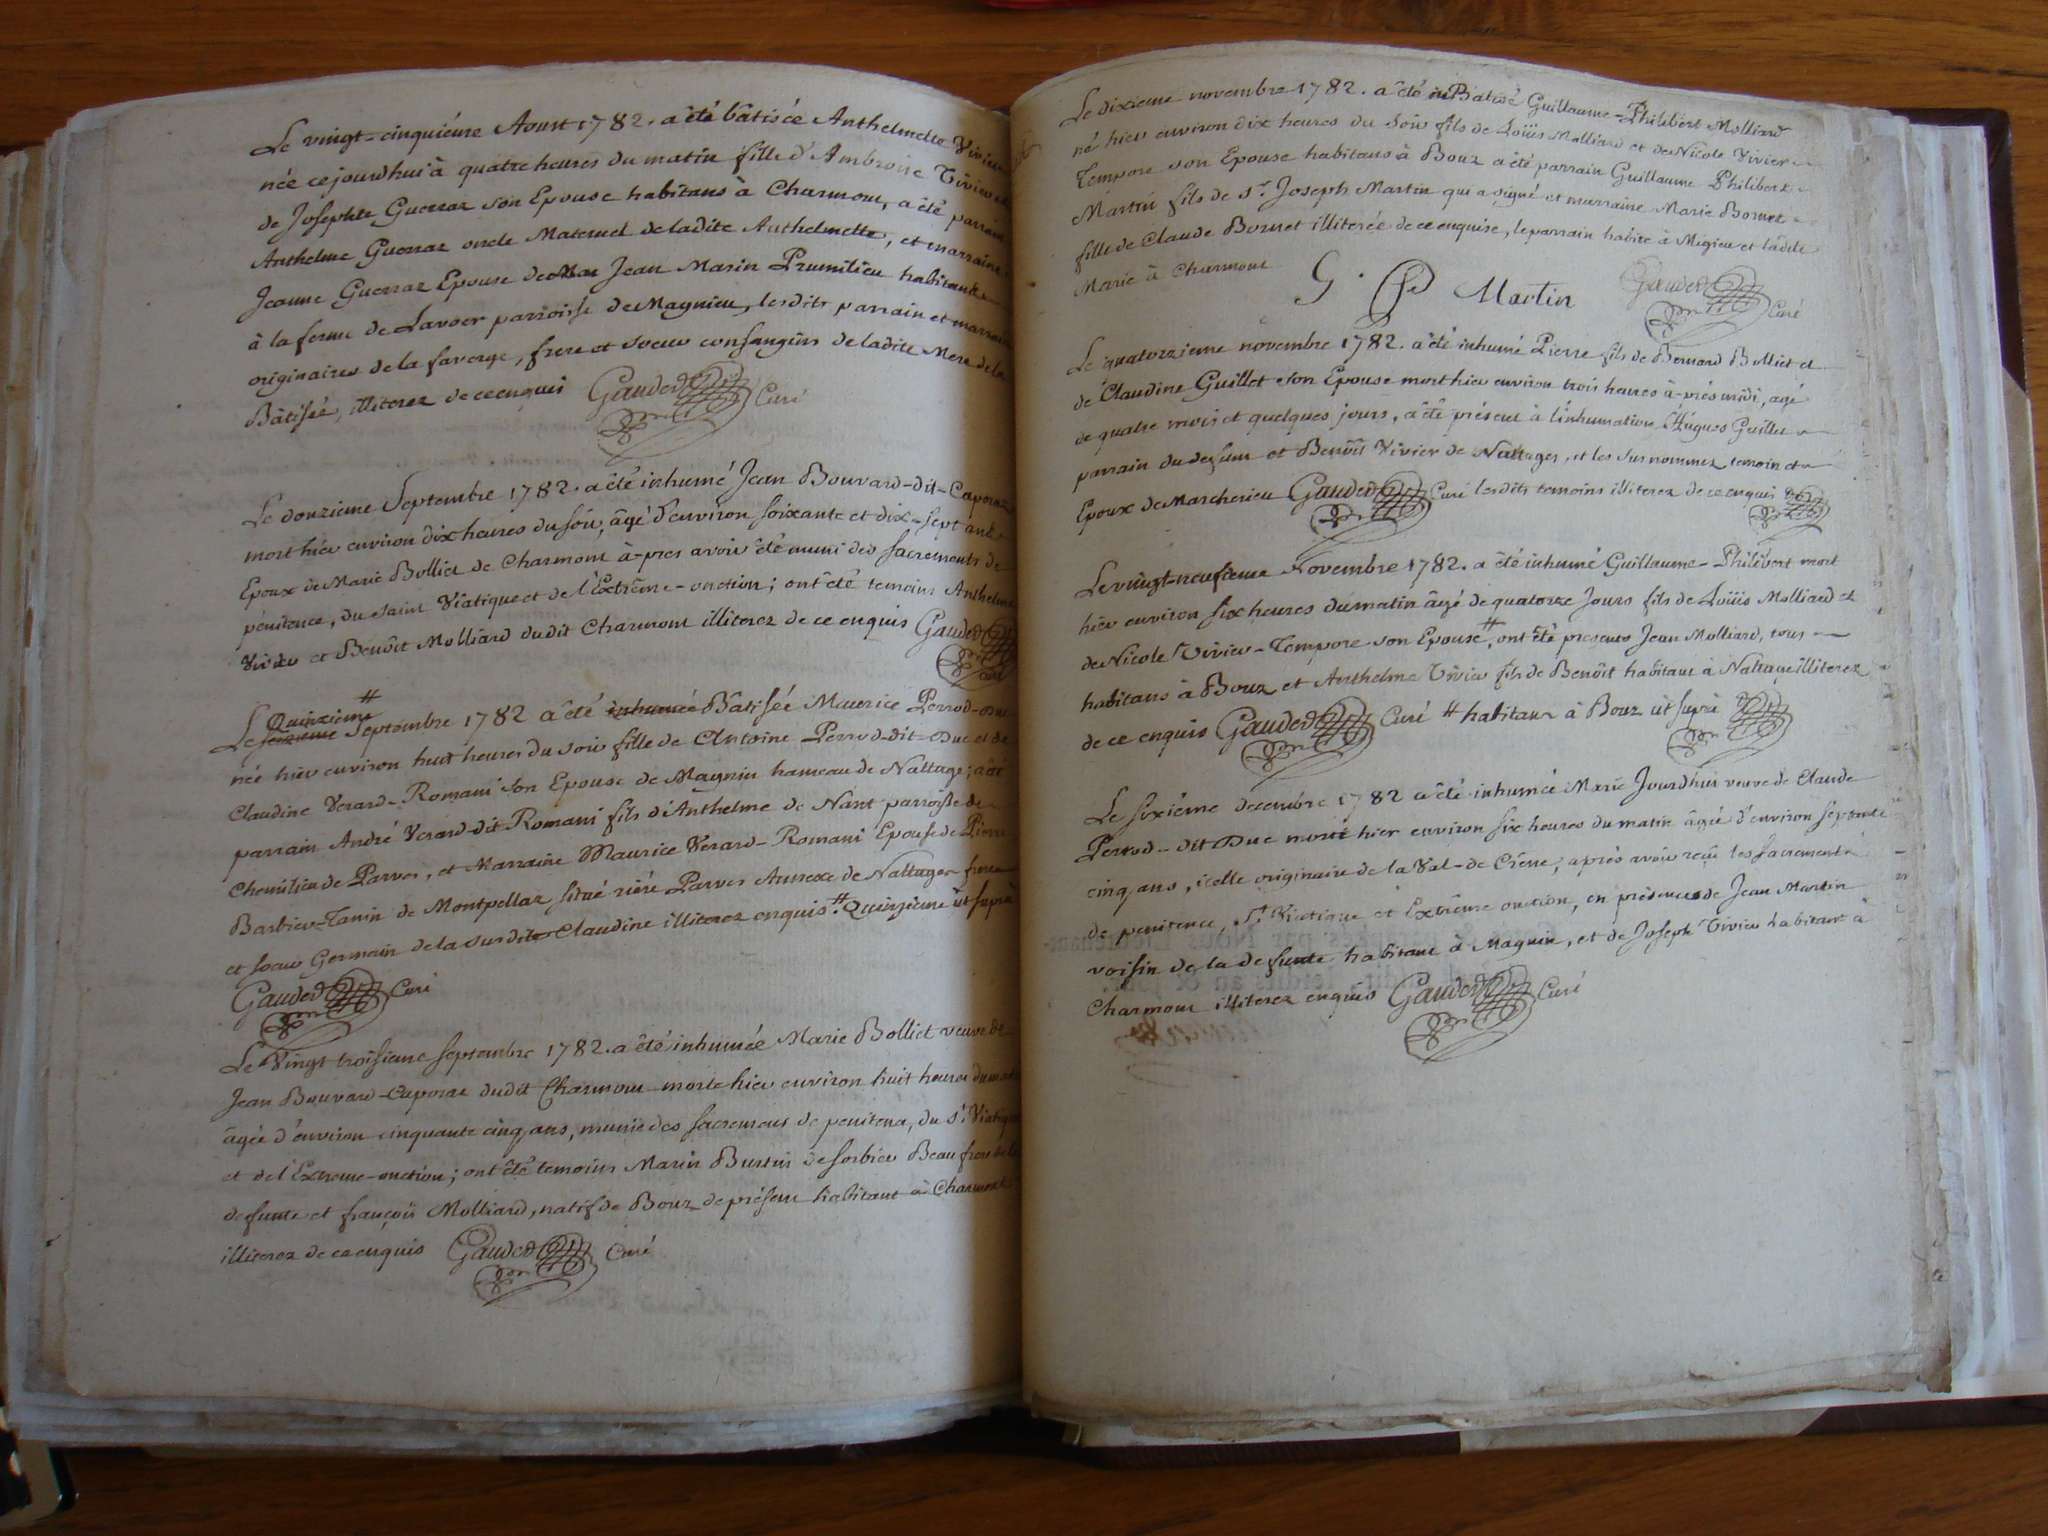 Le vingt-cinquiéme Aoust 1782. a êté bâtisée Anthelmette
née cejourdhui à quatre heures du matin fille d'Ambroise Vivier et
de Josephte Guerraz son Epouse habitans à Charmont, a êté parrain
Anthelme Guerraz oncle Maternel de ladite Anthelmette, et marraine
Jeanne Guerraz Epouse de Jean Marin Prumilieu habitant
à la ferme de Lavoer parroisse de Magnieu, lesdits parrain et marraine
originaires de la faverge, frere et soeur consanguins de ladite Mere de la
Bâtisée, illiterez de ce enquis Gaudet Curé
Le douzieme Septembre 1782. a êté inhumé Jean Bouvard-dit-Caporaz
mort hier environ dix heures du soir, âgé d'environ soixante et dix-sept ans
Epoux de Marie Bolliet de Charmont à-pres avoir êté muni des sacrements de
pénitence, du saint Viatique et de l'Extrême-onction; ont êté temoins Anthelme
Vivier et Benoît Molliard dudit Charmont illiterez de ce enquis Gaudet
Curé
Quinzieme #
Le seizieme Septembre 1782 a êté inhumée Bâtisée Maurice Perrod-Duc
née hier environ huit heures du soir fille de Antoine Perrod-dit-Duc et de
Claudine Verard-Romani son Epouse de Magnin hameau de Nattage; a êté
parrain André Verard-dit Romani fils d'Anthelme de Nant parroisse de
Chemilieu de Parves, et Marraine Maurice Verard-Romani Epouse de Pierre
Barbier-Tanin de Montpellaz situé riére Parves Annexe de Nattages frere
et soeur Germain de la susdite Claudine illiterez enquis. # Quinzieme ut suprà
Gaudet Curé
Le Vingt troisieme septembre 1782. a êté inhumée Marie Bolliet veuve de
Jean Bouvard-Caporaz dudit Charmont morte hier environ huit heures du matin
âgée d'environ cinquante cinq ans, munie des sacremens de penitence, du St. Viatique
et de l'Extreme-onction; ont êté temoins Marin Burtin de sorbier Beau frere de la
defunte et françois Molliard, natif de Bouz de présent habitant à Charmont
illiterez de ce enquis Gaudet Curé
Le dixieme novembre 1782. a êté Batisé Guillaume-Philibert Molliard
né hier environ dix heures du soir fils de Loüis Molliard et de Nicole Vivier
Tempore son Epouse habitans à Bouz a êté parrain Guillaume Philibert
Martin fils de Sr. Joseph Martin qui a signé et marraine Marie Bornet
fille de Claude Bornet illiterée de ce enquise, le parrain habite à Migieu et ladite
Marie à Charmont
G. P Martin Gaudet Curé
Le quatorzieme novembre 1782. a êté inhumé Pierre fils de Bernard Bolliet et
de Claudine Guillet son Epouse mort hier environ trois heures à-près midi, agé
de quatre mois et quelques jours, a êté présent à l'inhumation Hugues Guillet
parrain du defunt et Benoît Vivier de Nattages, et les susnommez temoin et
Epoux de Marcherieu Gaudet Curé lesdits temoins illiterez de ce enquis
Le vingt-neufieme Novembre 1782. a êté inhumé Guillaume-Philibert mort
hier environ six heures du matin âgé de quatorze Jours fils de Loüis Molliard et
de Nicole Vivier-Tempore son Epouse #, ont êté presents Jean Molliard, tous
habitans à Bouz et Anthelme Vivier fils de Benoît habitant à Nattage illiterez
de ce enquis Gaudet Curé # habitans à Bouz ut suprà
Le sixiéme decembre 1782 a êté inhumée Marie Jourdhui veuve de Claude
Perrod-dit Duc morte hier environ six heures du matin âgée d'environ septante
cinq ans, icelle originaire de la Val-de Crêne; après avoir reçu les sacrements
de penitence, St. Viatique et Extrême onction, en présence de Jean Martin
voisin de la defunte habitant à Magnin, et de Joseph Vivier habitant à
Charmont illiterez enquis Gaudet Curé